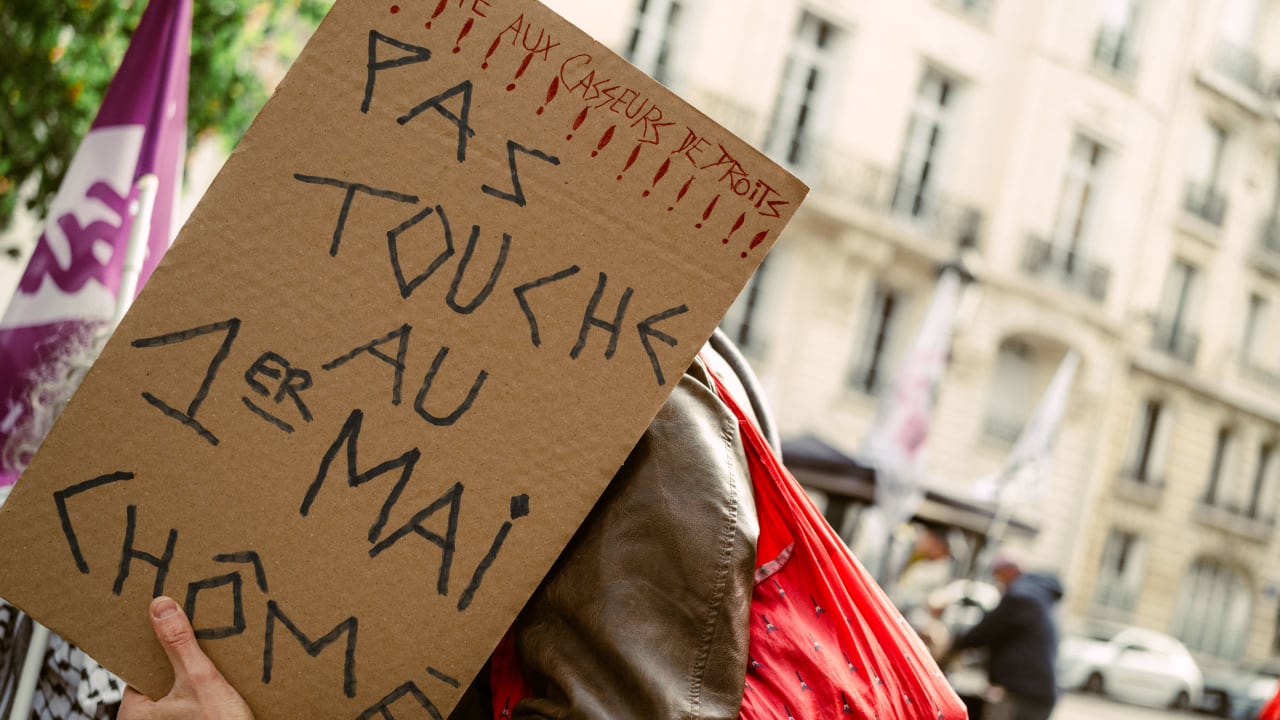 AUX CASSEURS DE DROITS
!!!!!!!!!!!!!!
PAS
TOUCHE
AU
1ER
MAi
CHÔM